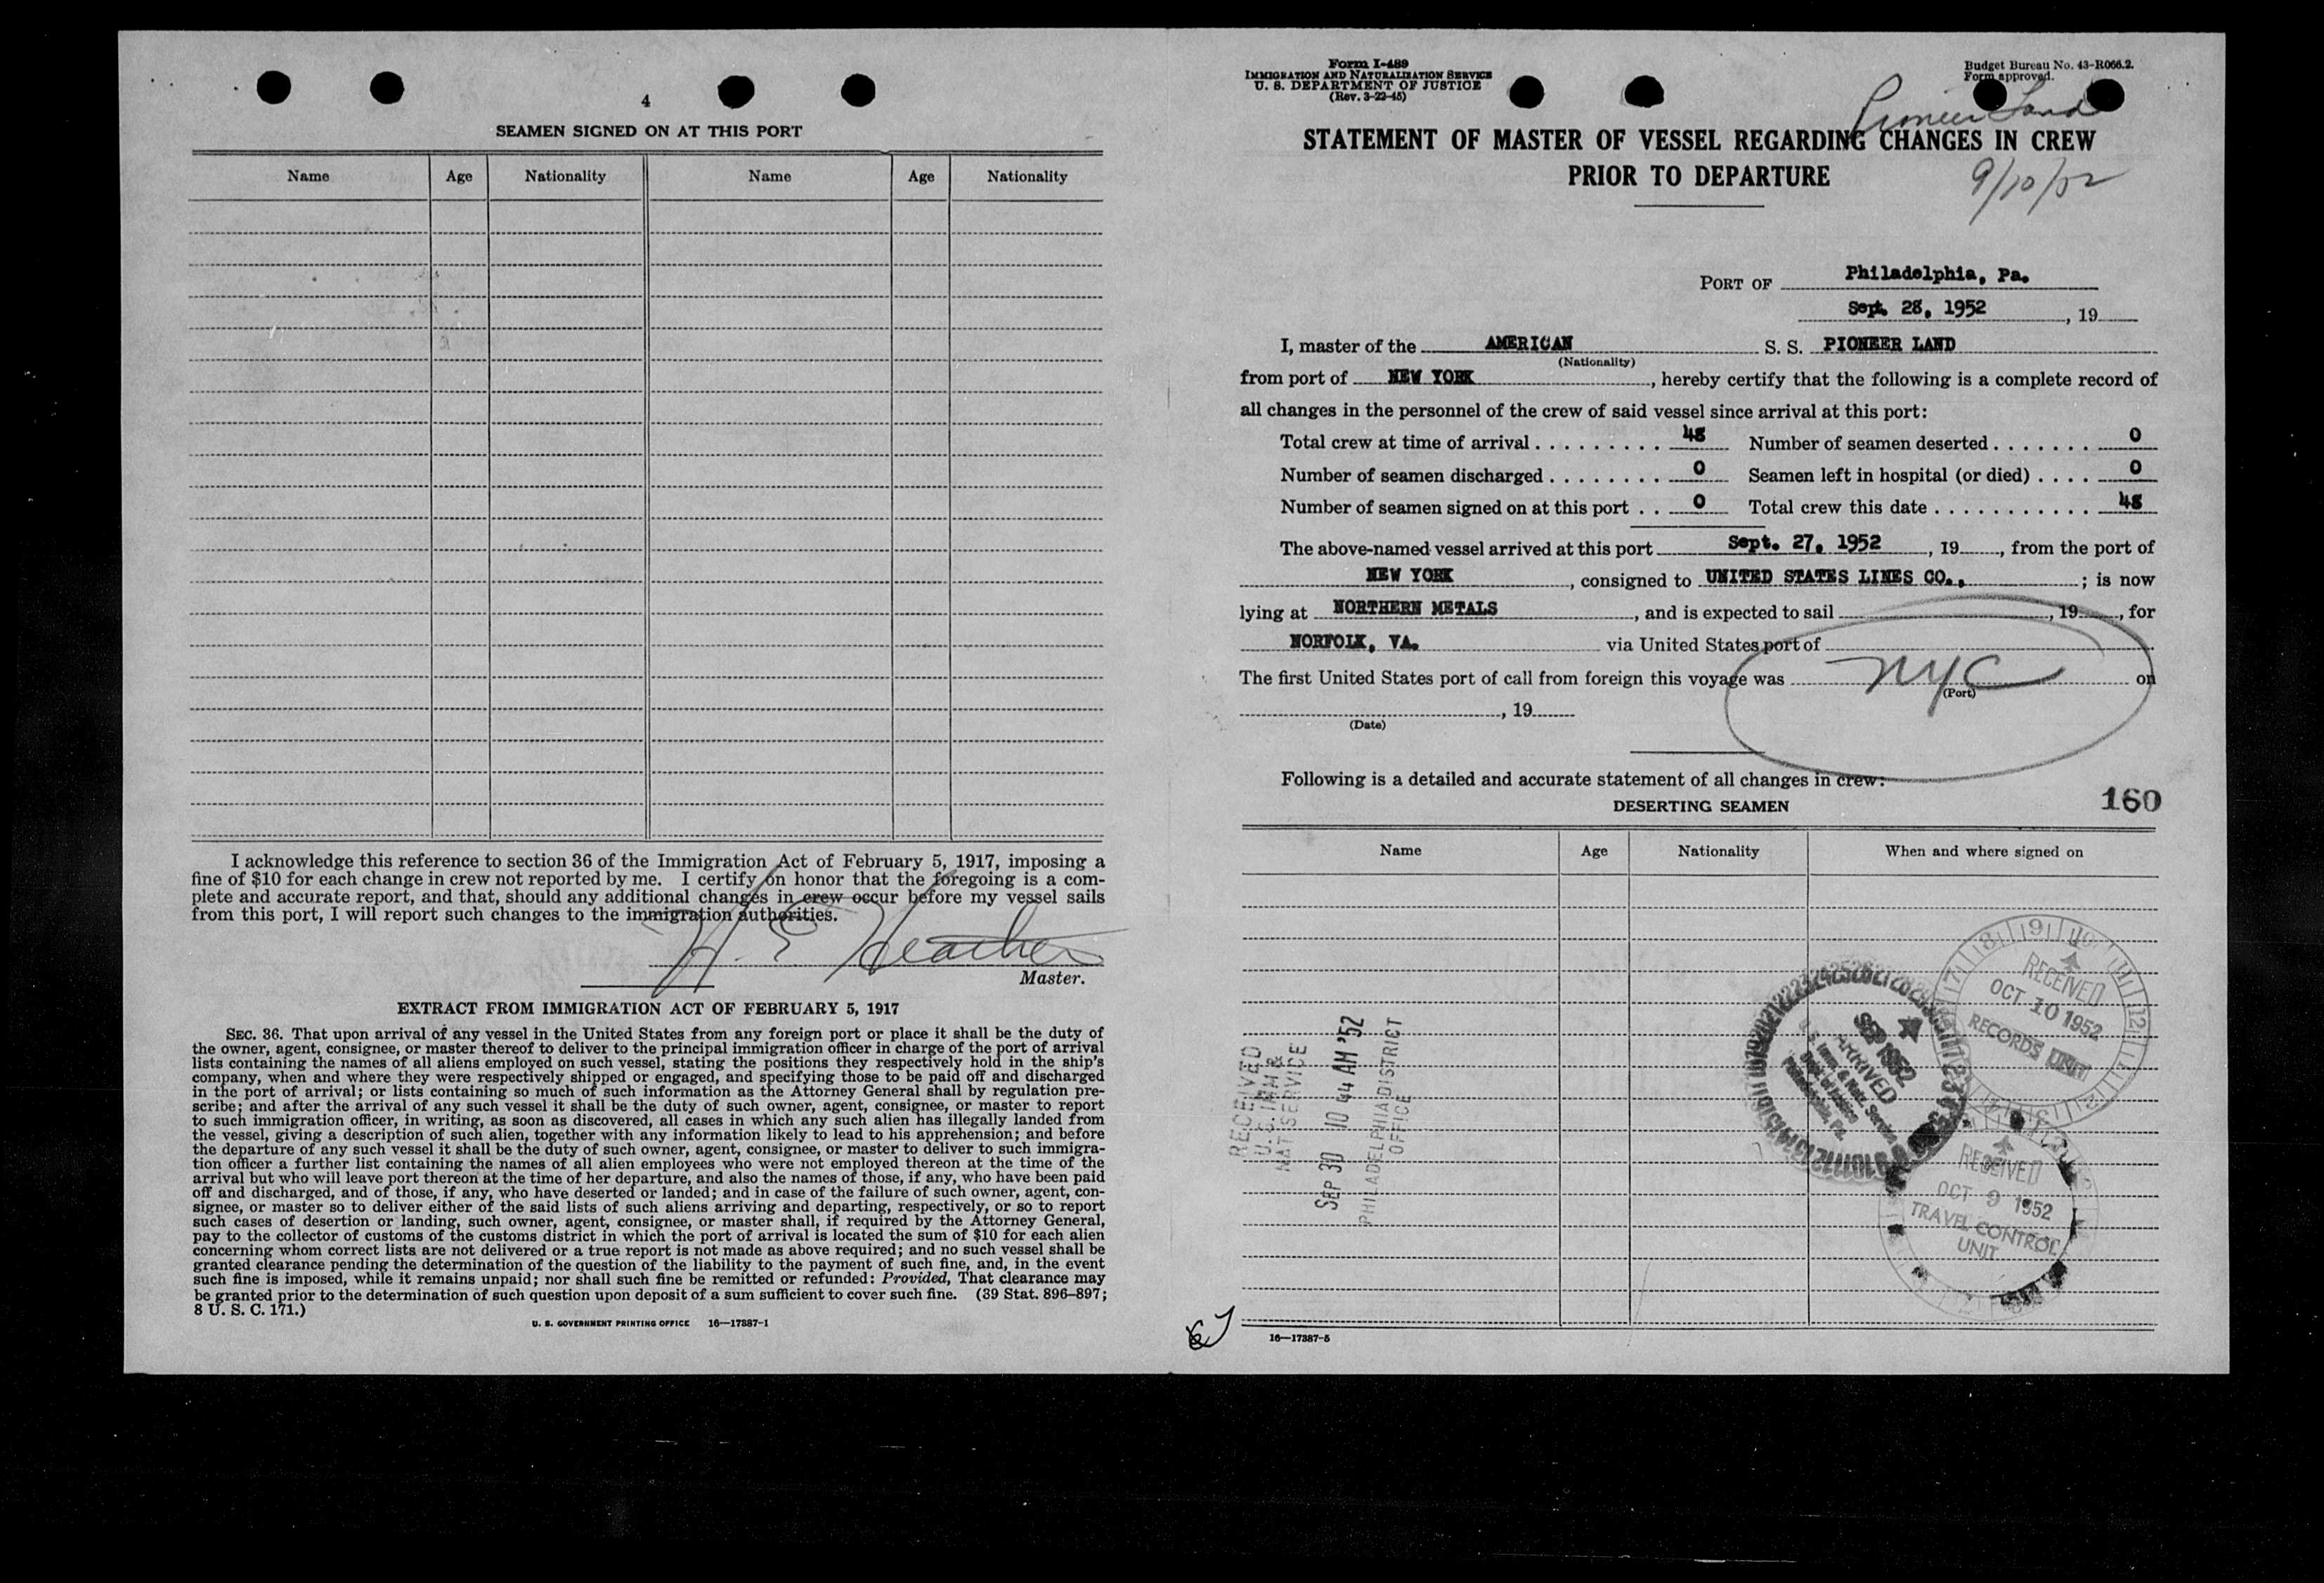 4
SEAMEN SIGNED ON AT THIS PORT
Name Age Nationality Name Age Nationality
I acknowledge this reference to section 36 of the Immigration Act of February 5, 1917, imposing a
fine of $10 for each change in crew not reported by me. I certify on honor that the foregoing is a com-
plete and accurate report, and that, should any additional changes in crew occur before my vessel sails
from this port, I will report such changes to the immigration authorities.
H. E. Heather
Master.
EXTRACT FROM IMMIGRATION ACT OF FEBRUARY 5, 1917
SEC. 36. That upon arrival of any vessel in the United States from any foreign port or place it shall be the duty of
the owner, agent, consignee, or master thereof to deliver to the principal immigration officer in charge of the port of arrival
lists containing the names of all aliens employed on such vessel, stating the positions they respectively hold in the ship's
company, when and where they were respectively shipped or engaged, and specifying those to be paid off and discharged
in the port of arrival; or lists containing so much of such information as the Attorney General shall by regulation pre-
scribe; and after the arrival of any such vessel it shall be the duty of such owner, agent, consignee, or master to report
to such immigration officer, in writing, as soon as discovered, all cases in which any such alien has illegally landed from
the vessel, giving a description of such alien, together with any information likely to lead to his apprehension; and before
the departure of any such vessel it shall be the duty of such owner, agent, consignee, or master to deliver to such immigra-
tion officer a further list containing the names of all alien employees who were not employed thereon at the time of the
arrival but who will leave port thereon at the time of her departure, and also the names of those, if any, who have been paid
off and discharged, and of those, if any, who have deserted or landed; and in case of the failure of such owner, agent, con-
signee, or master so to deliver either of the said lists of such aliens arriving and departing, respectively, or so to report
such cases of desertion or landing, such owner, agent, consignee, or master shall, if required by the Attorney General,
pay to the collector of customs of the customs district in which the port of arrival is located the sum of $10 for each alien
concerning whom correct lists are not delivered or a true report is not made as above required; and no such vessel shall be
granted clearance pending the determination of the question of the liability to the payment of such fine, and, in the event
such fine is imposed, while it remains unpaid; nor shall such fine be remitted or refunded: Provided, That clearance may
be granted prior to the determination of such question upon deposit of a sum sufficient to cover such fine. (39 Stat. 896–897;
8 U. S. C. 171.)
U. S. GOVERNMENT PRINTING OFFICE 16—17387-1
Form I-489
IMMIGRATION AND NATURALIZATION SERVICE
U. S. DEPARTMENT OF JUSTICE
(Rev. 3-22-45)
Budget Bureau No. 43-R066.2.
Form approved.
Pioneer Land
STATEMENT OF MASTER OF VESSEL REGARDING CHANGES IN CREW
PRIOR TO DEPARTURE
9/10/52
PORT OF Philadelphia, Pa.
Sept. 28, 1952, 19
I, master of the AMERICAN S. S. PIONEER LAND
(Nationality)
from port of NEW YORK, hereby certify that the following is a complete record of
all changes in the personnel of the crew of said vessel since arrival at this port:
Total crew at time of arrival 48 Number of seamen deserted 0
Number of seamen discharged 0 Seamen left in hospital (or died) 0
Number of seamen signed on at this port 0 Total crew this date 48
The above-named vessel arrived at this port Sept. 27, 1952, 19, from the port of
NEW YORK, consigned to UNITED STATES LINES CO.,; is now
lying at NORTHERN METALS, and is expected to sail , 19, for
NORFOLK, VA. via United States port of
The first United States port of call from foreign this voyage was NYC on
(Port)
, 19
(Date)
Following is a detailed and accurate statement of all changes in crew:
DESERTING SEAMEN
160
Name Age Nationality When and where signed on
RECEIVED
U.S. IMM &
NAT SERVICE
SEP 30 10 44 AM '52
PHILADELPHIA DISTRICT
OFFICE
SEP 1952
ARRIVED
U. S. Imm. & Natz. Service
Dept. of Justice
Philadelphia, Pa.
RECEIVED
OCT 10 1952
RECORDS UNIT
RECEIVED
OCT 9 1952
TRAVEL CONTROL
UNIT
16—17387-5